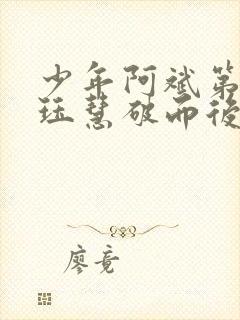 少年阿斌第
珏慧破而後
廖竟